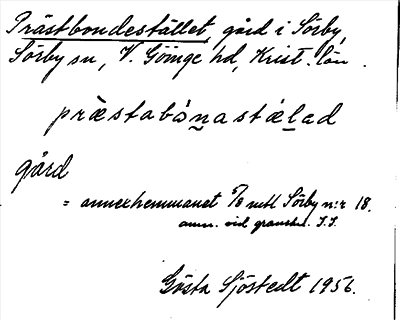 Prästbondestället, gård i Sörby,
Sörby sn, V. Göinge hd, Krist. län.
præstabónastǽlad
gård
= annexhemmanet 7/8 mtl Sörby n:r 18.
anm. vid granskn. I.I.
Gösta Sjöstedt 1956.